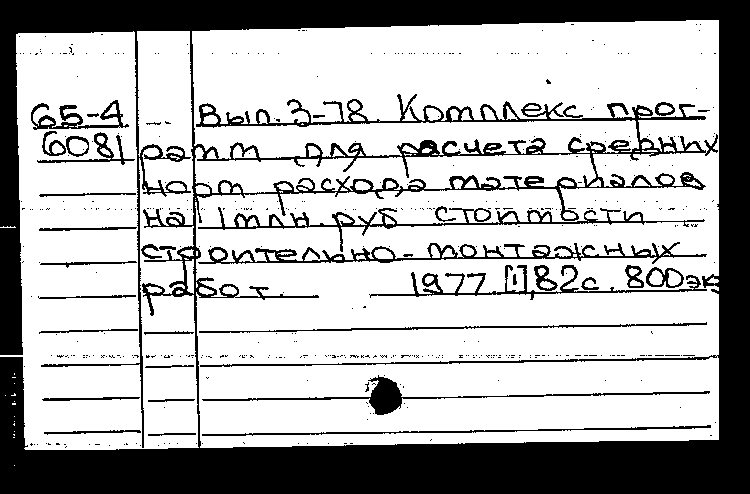 65-4 Вып. 3-78. Комплекс прог-
6081 рамм для расчета средних
норм расхода материалов
на 1 млн. руб стоимости
строительно-монтажных
работ. 1977 [1], 82с. 800экз